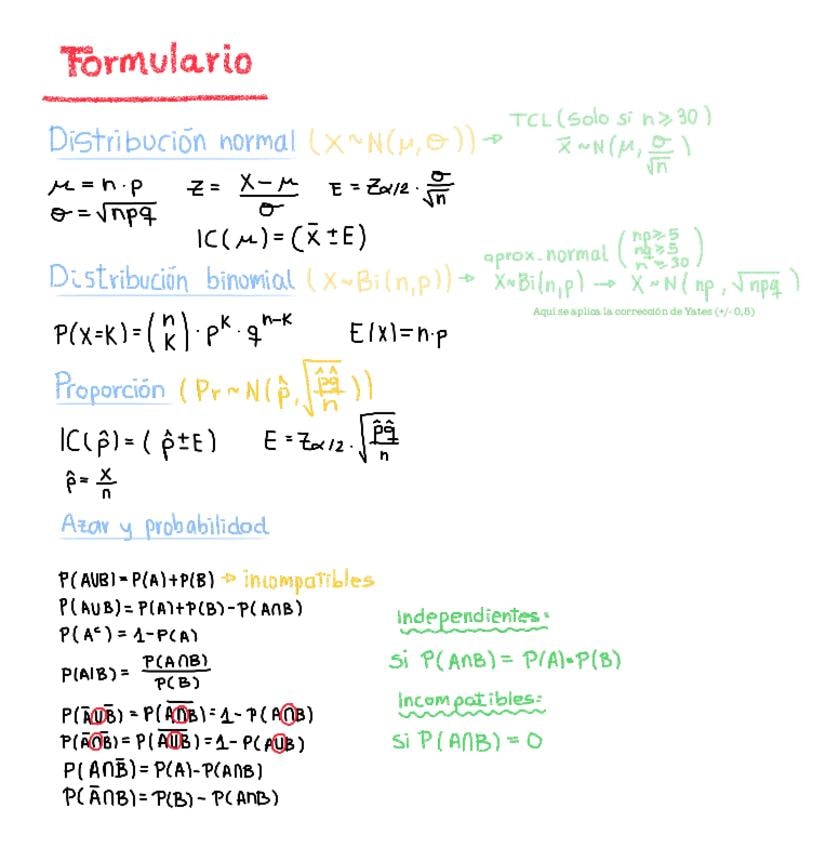 Formulario
Distribución normal (X~N(μ,σ)) → TCL (Solo si n≥30)
X̄~N(μ, σ/√n)
μ = n·p   Z = (X-μ)/σ   E = Zα/2 · σ/√n
σ = √npq
IC(μ) = (X̄ ± E)
Distribución binomial (X~Bi(n,p)) → aprox. normal (np≥5 nq≥5 n≥30)
X~Bi(n,p) → X~N(np, √npq)
Aquí se aplica la corrección de Yates (+/- 0,5)
P(X=K) = (n K) · p^K · q^(n-K)   E(X) = n·p
Proporción (Pr~N(p̂, √(p̂q̂/n)))
IC(p̂) = (p̂ ± E)   E = Zα/2 · √(p̂q̂/n)
p̂ = x/n
Azar y probabilidad
P(A∪B) = P(A)+P(B) → incompatibles
P(A∪B) = P(A)+P(B)-P(A∩B)
P(Aᶜ) = 1-P(A)
P(A/B) = P(A∩B)/P(B)
P(Ā∪B̄) = P(A̅∩̅B̅) = 1-P(A∩B)
P(Ā∩B̄) = P(A̅∪̅B̅) = 1-P(A∪B)
P(A∩B̄) = P(A)-P(A∩B)
P(Ā∩B) = P(B)-P(A∩B)
Independientes:
si P(A∩B) = P(A)·P(B)
Incompatibles:
si P(A∩B) = 0